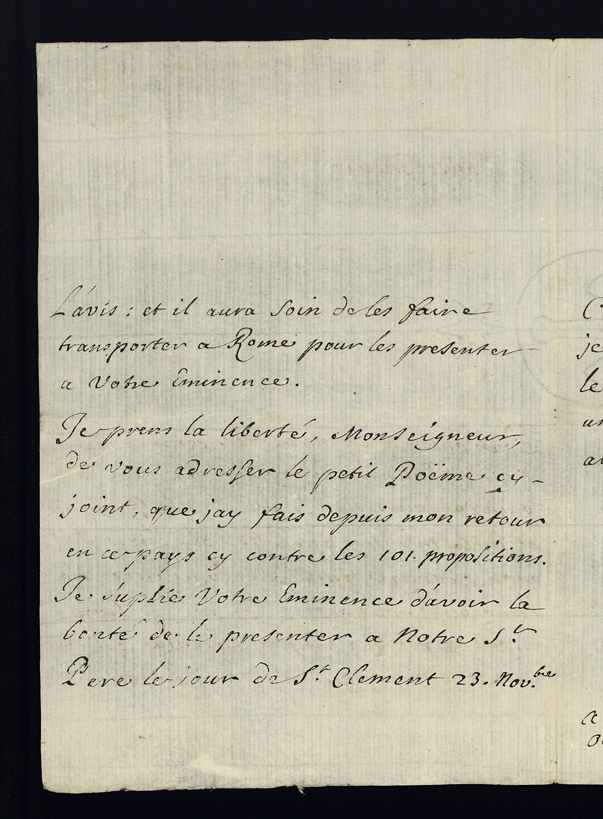 L'avis : et il aura soin de les faire
transporter a Rome pour les presenter
a Votre Eminence.
Je prens la liberté, Monseigneur,
de vous adresser le petit Poëme cy-
joint, que jay fais depuis mon retour
en ce pays cy contre les 101. propositions.
Je suplie Votre Eminence d'avoir la
bonté de le presenter a Notre St
Pere le jour de St. Clement 23. Novbre
je
le